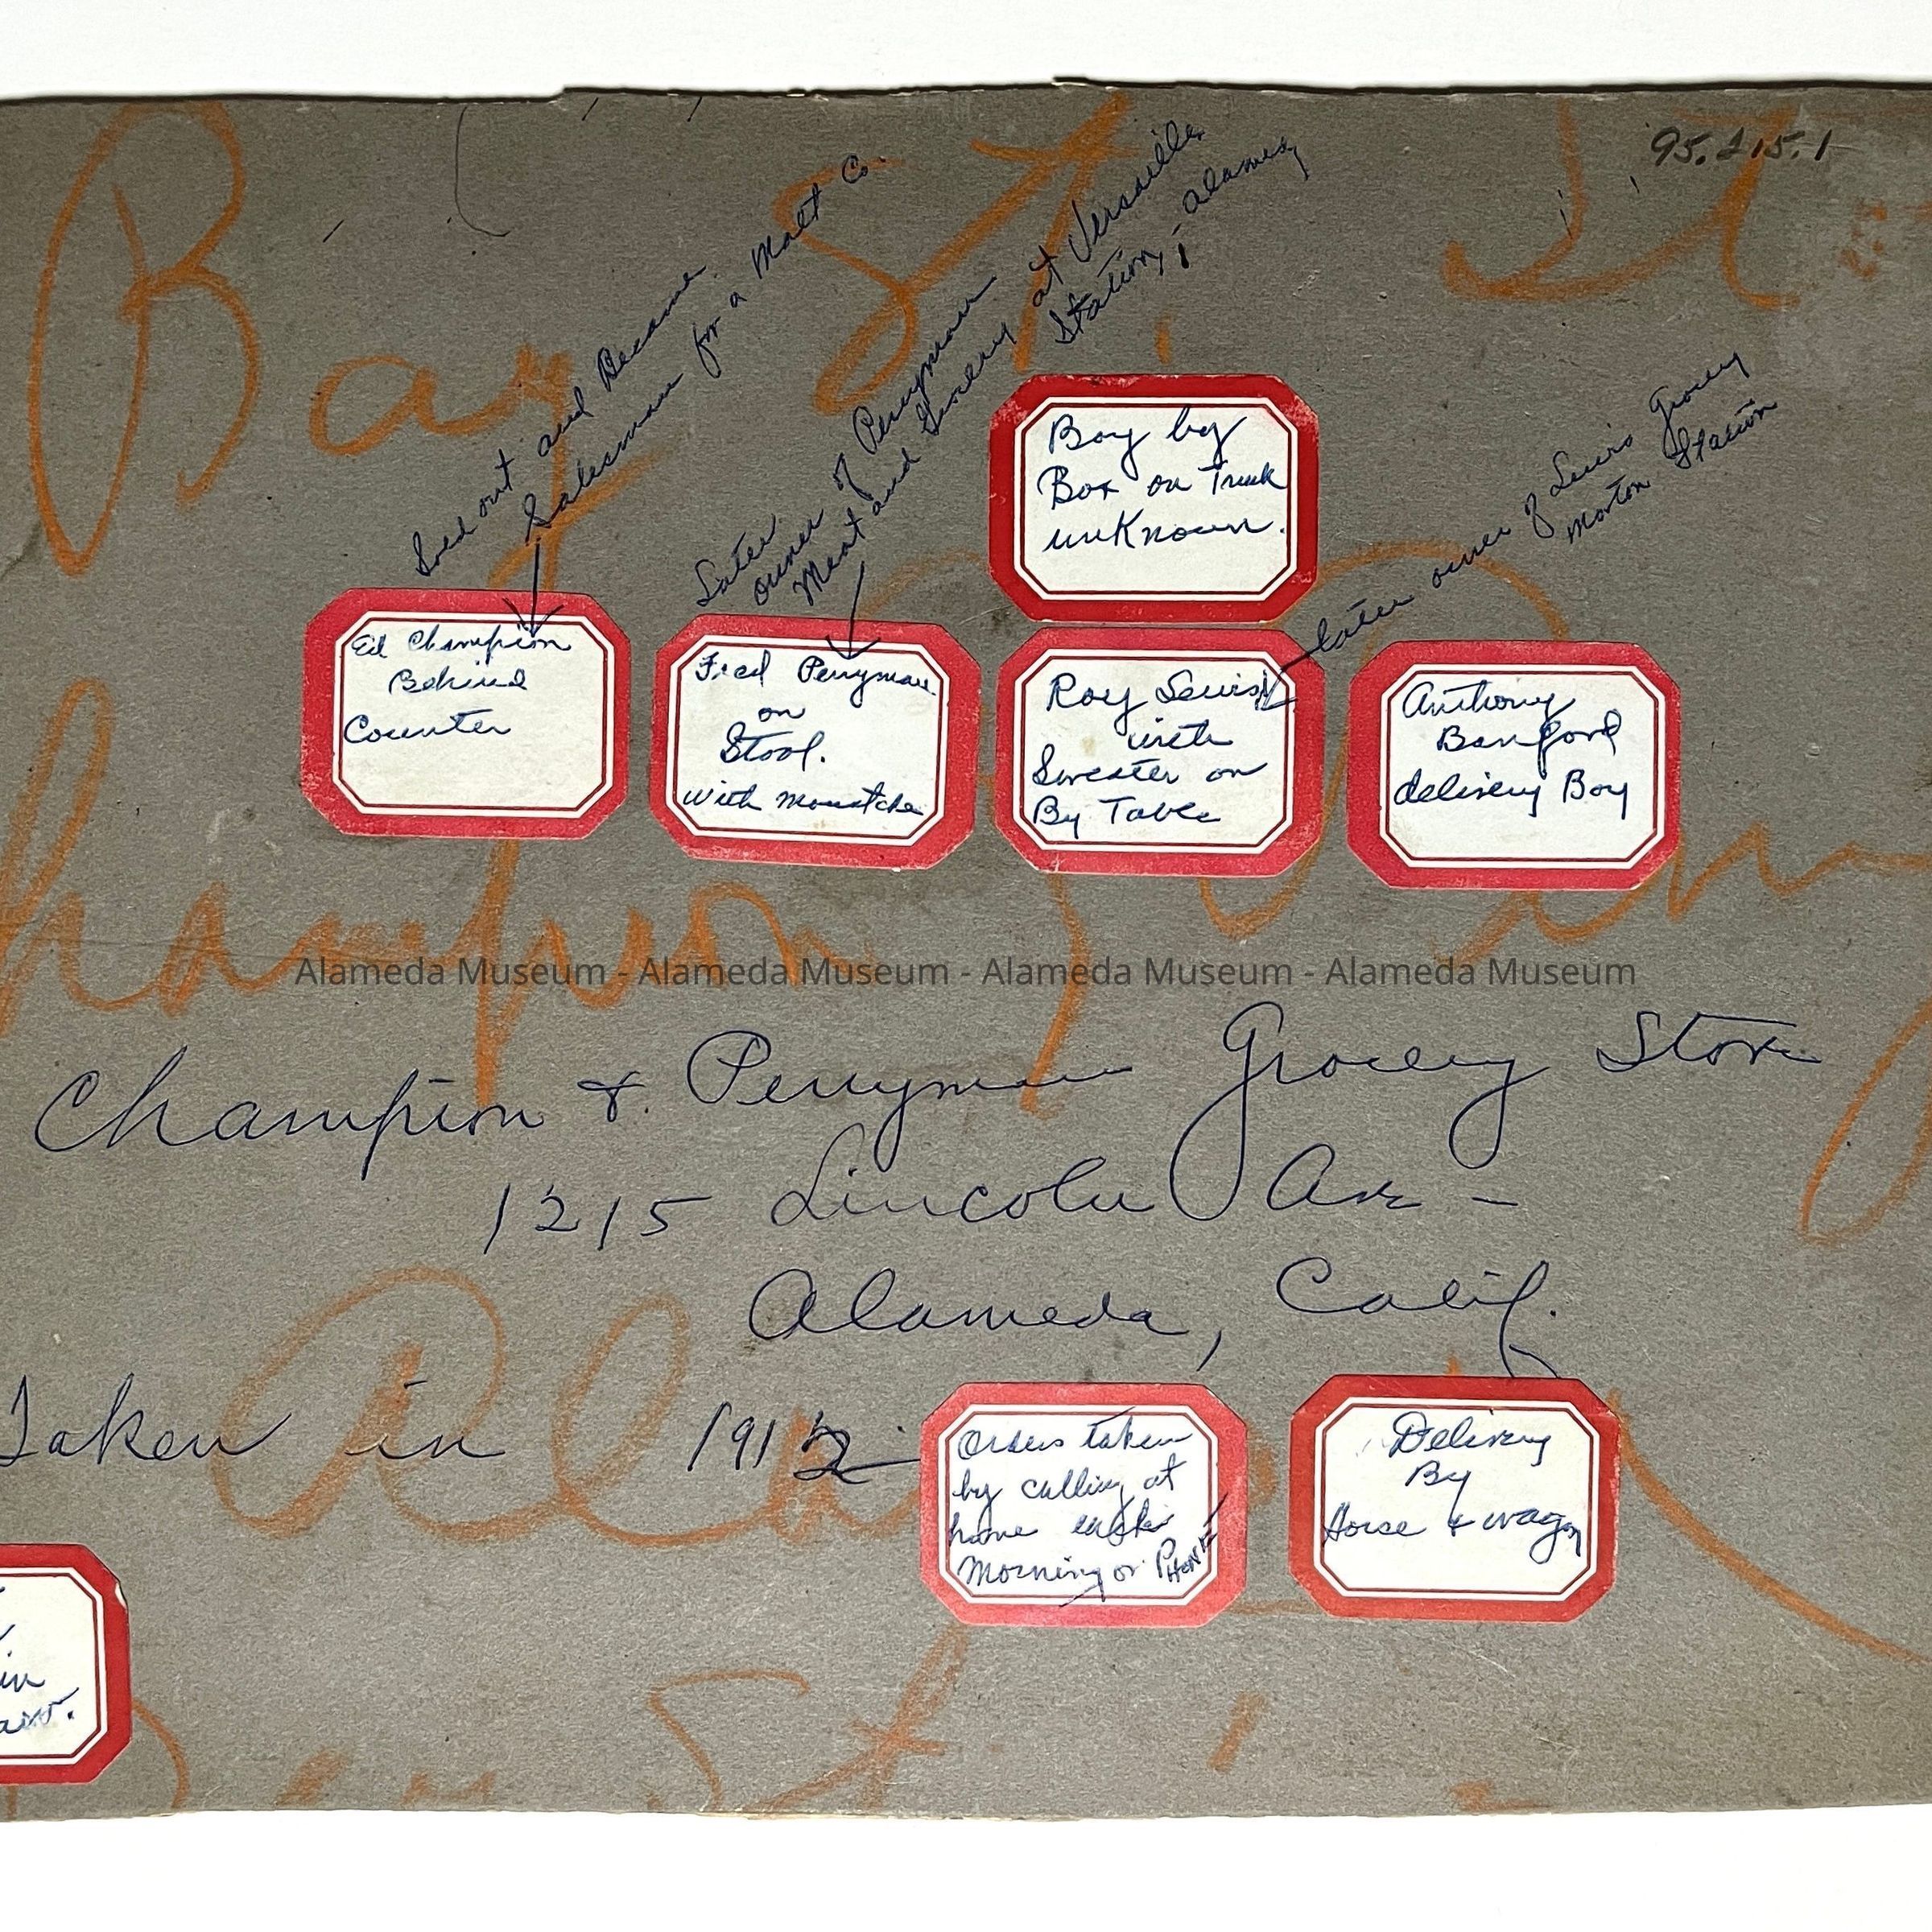 95.215.1
Bay St.
St
Sold out and Became
Salesman for a Malt Co.
Later
owner of Perryman
Meat and Grocery at Versailles
Station, Alameda
later owner of Lewis Grocery
Morton Station
Boy by
Box on Truck
unKnown.
Ed Champion
Behind
Counter
Fred Perryman
on
Stool.
with Moustche
Roy Lewis
with
Sweater on
By Table
Anthony
Banford
delivery Boy
Alameda Museum - Alameda Museum - Alameda Museum - Alameda Museum
Champion & Perryman Grocery Store
1215 Lincoln Ave -
Alameda, Calif.
Taken in 1912
Orders taken
by calling at
home
Morning or PHONE
Delivery
By
Horse & wagon
in